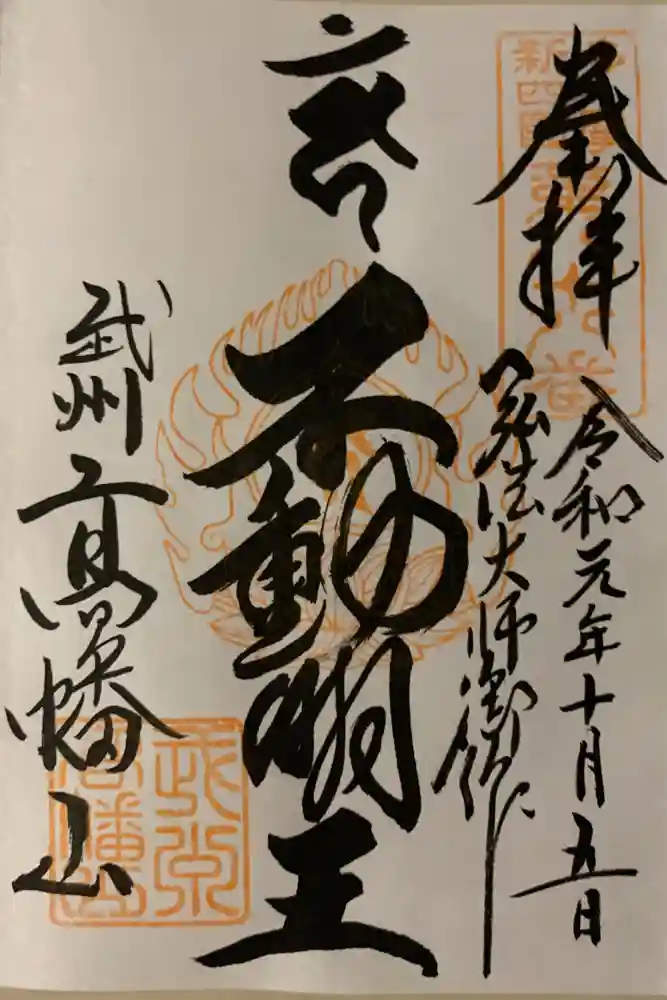 奉拝
令和元年十月五日
弘法大師御作
不動明王
武州高幡山